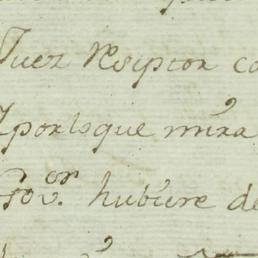 Juez Reseptor co
Y por lo que mira
Gov.or hubiere de